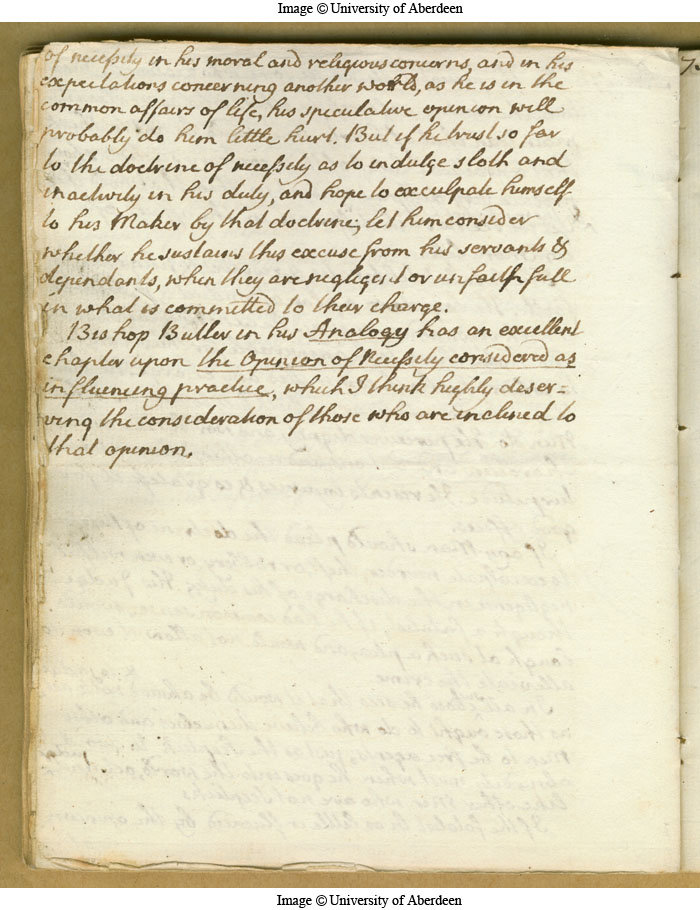 Image © University of Aberdeen
of necessity in his moral and religious concerns, and in his
expectations concerning another world, as he is in the
common affairs of life, his speculative opinion will
probably do him little hurt. But if he trust so far
to the doctrine of necessity as to indulge sloth and
inactivity in his duty, and hope to exculpate himself
to his Maker by that doctrine; let him consider
whether he sustains this excuse from his servants &
dependants, when they are negligent or unfaithfull
in what is committed to their charge.
Bishop Butler in his Analogy has an excellent
chapter upon the Opinion of Necessity considered as
influencing practice, which I think highly deser=
ving the consideration of those who are inclined to
that opinion.
Image © University of Aberdeen